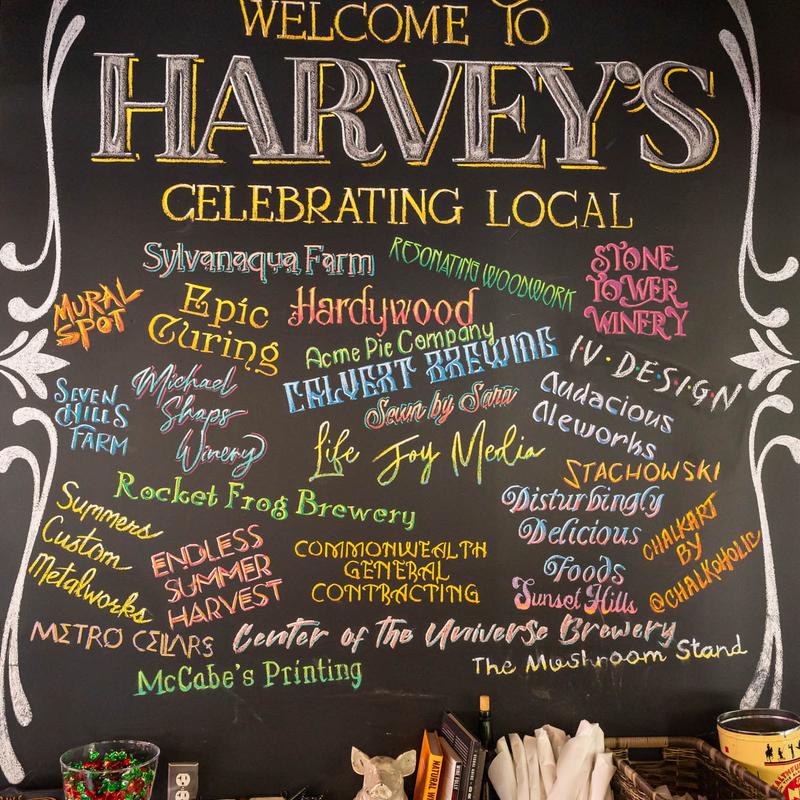 WELCOME TO
HARVEY'S
CELEBRATING LOCAL
Sylvanaqua Farm
RESONATING WOODWORK
STONE
TOWER
WINERY
MURAL
SPOT
Epic
Curing
Hardywood
Acme Pie Company
CALVERT BREWING
IV·DESIGN
SEVEN
HILLS
FARM
Michael
Shaps
Winery
Sewn by Sara
Audacious
Aleworks
Life Joy Media
STACHOWSKI
Rocket Frog Brewery
Disturbingly
Delicious
Foods
Summers
Custom
Metalworks
ENDLESS
SUMMER
HARVEST
COMMONWEALTH
GENERAL
CONTRACTING
CHALKART
BY
@CHALKOHOLIC
Sunset Hills
METRO CELLARS
Center of the Universe Brewery
The Mushroom Stand
McCabe's Printing